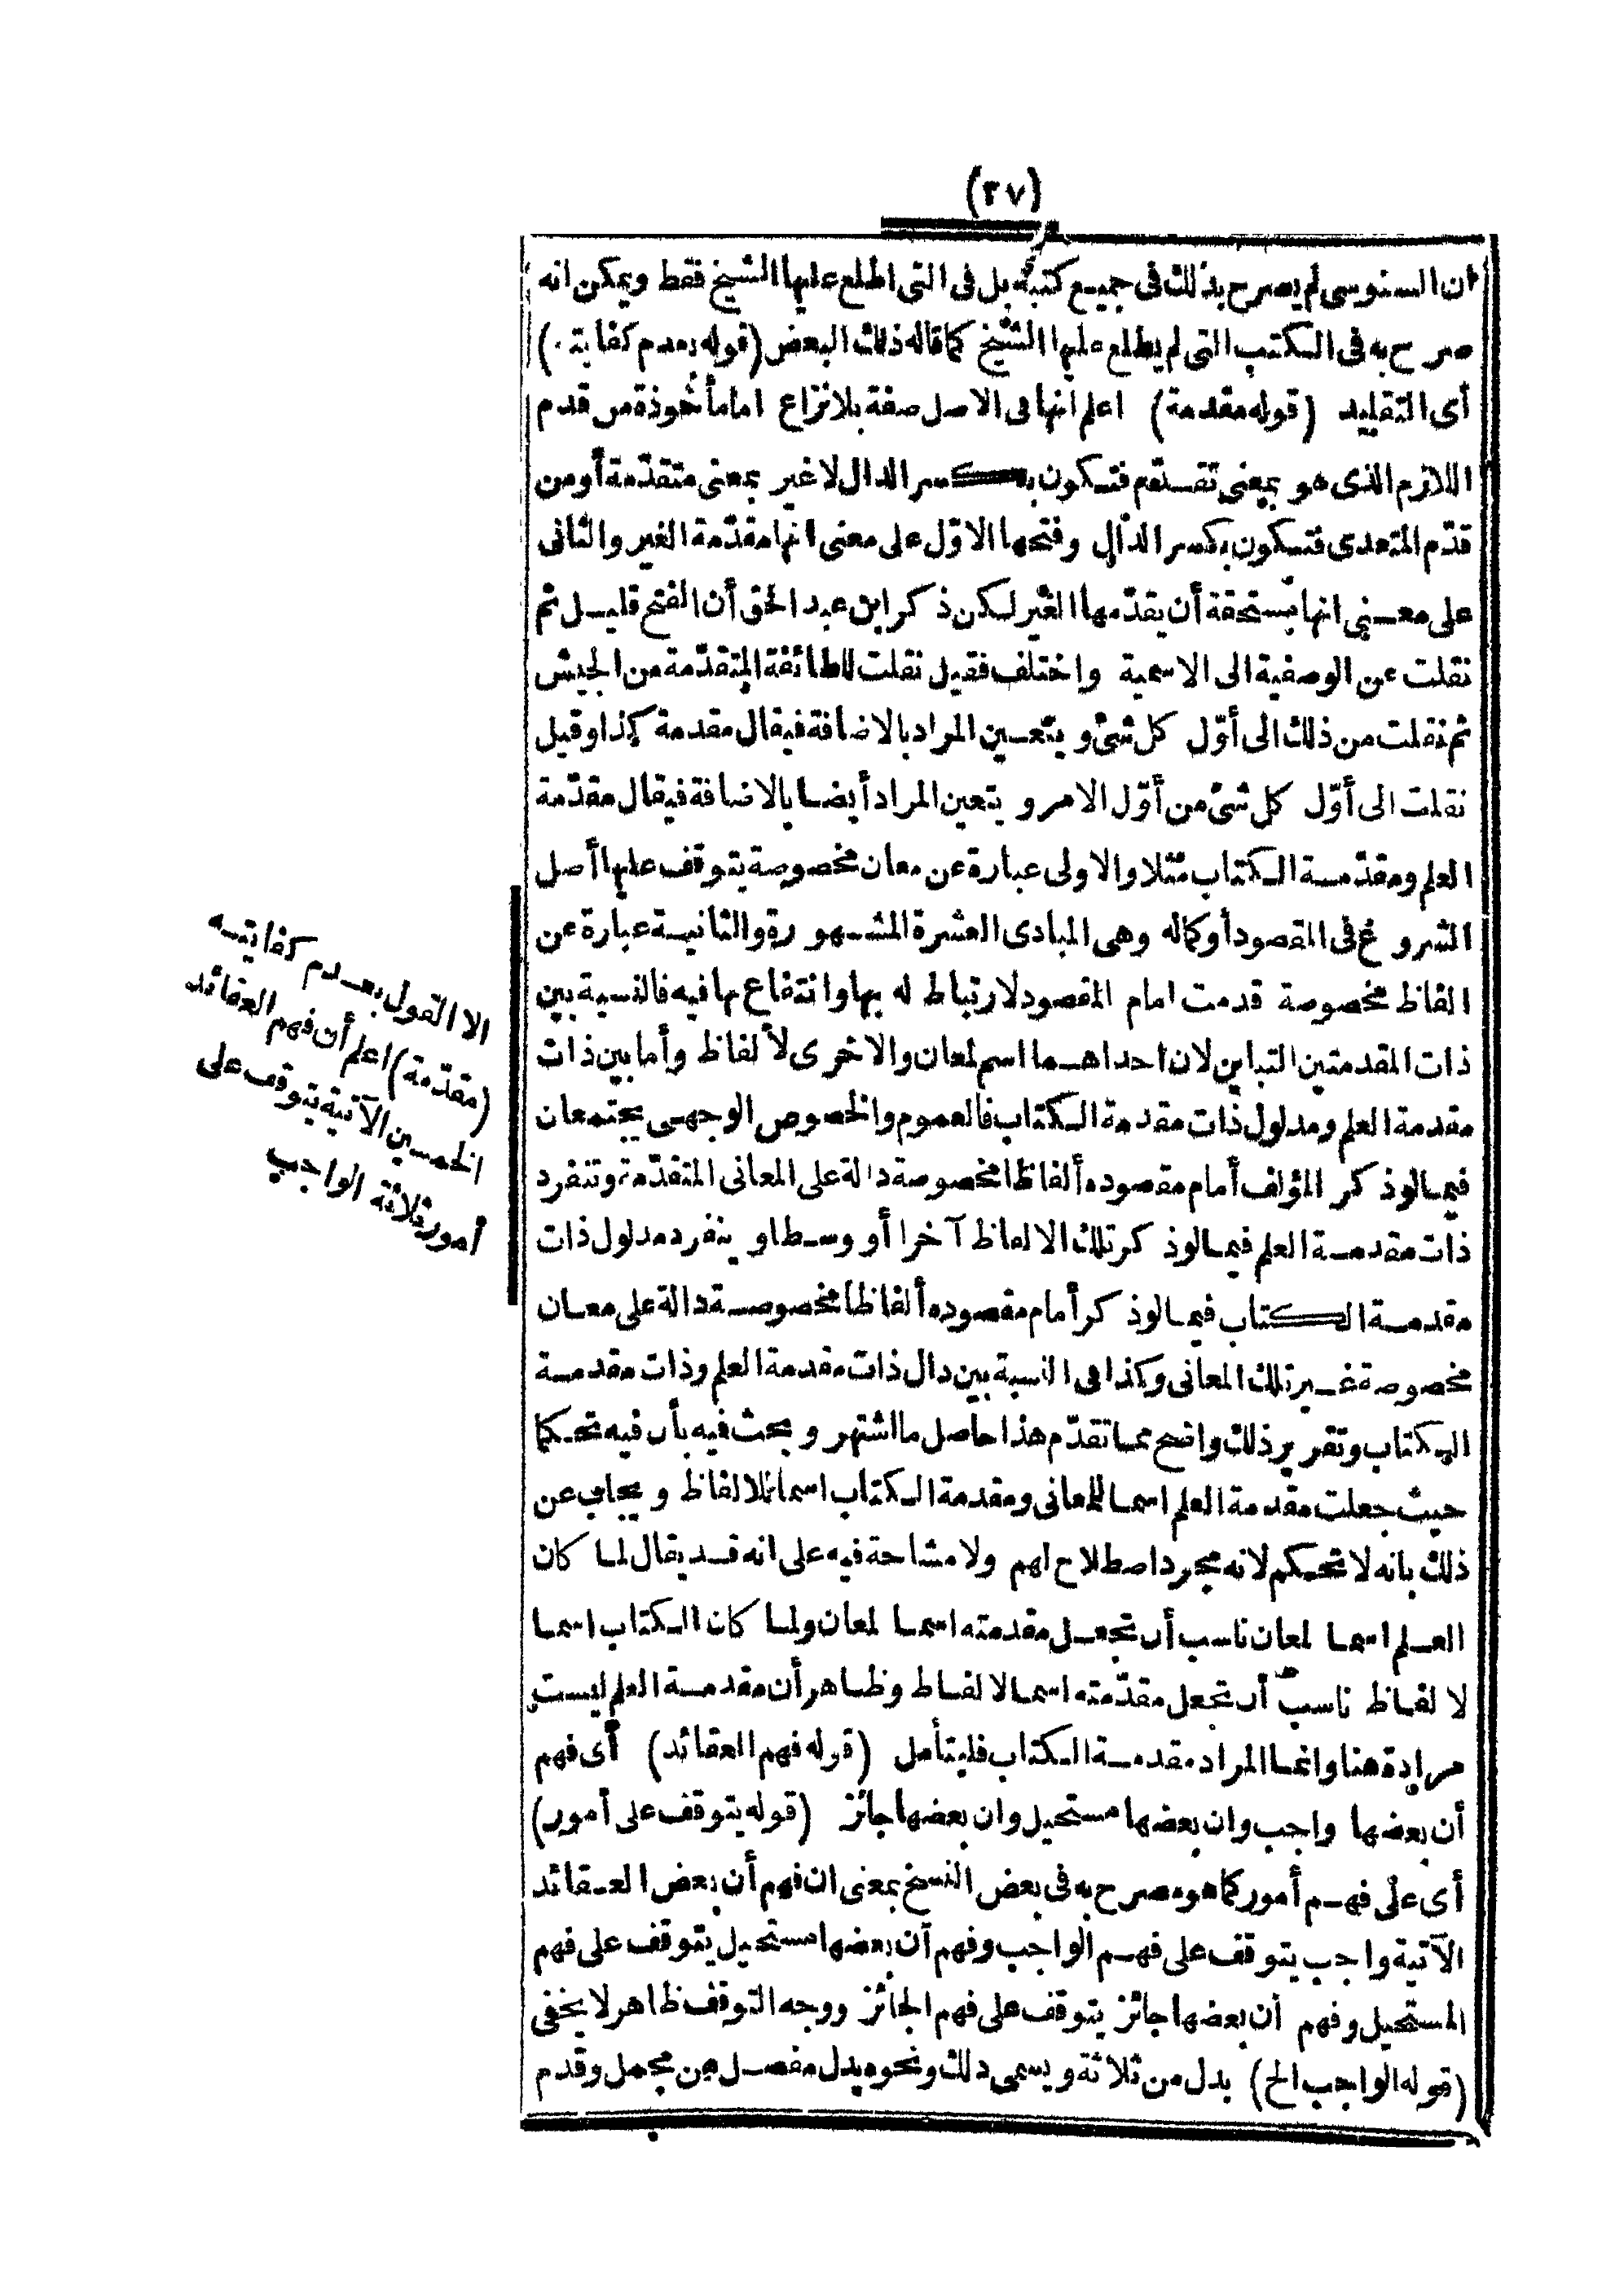 (٢٧)
ان السنوسى لم يصرح بذلك فى جميع كتبه بل فى التى اطلع عليها الشيخ فقط ويمكن انه
صرح به فى الكتب التى لم يطلع عليها الشيخ كما قاله ذلك البعض (قوله بعدم كفايته)
أى التقليد (قوله مقدمة) اعلم انها فى الاصل صفة بلا نزاع اما مأخوذة من قدم
اللازم الذى هو بمعنى تقدّم فتكون بكسر الدال لا غير بمعنى متقدّمة أو من
قدّم المتعدى فتكون بكسر الدال وفتحها الاوّل على معنى انها مقدّمة الغير والثانى
على معنى انها مستحقة أن يقدّمها الغير لكن ذكر ابن عبد الحق أن الفتح قليل ثم
نقلت عن الوصفية الى الاسمية واختلف فقيل نقلت للطائفة المتقدّمة من الجيش
ثم نقلت من ذلك الى أوّل كل شئ و يتعين المراد بالاضافة فيقال مقدمة كذا وقيل
نقلت الى أوّل كل شئ من أوّل الامر و يتعين المراد أيضا بالاضافة فيقال مقدّمة
العلم ومقدّمة الكتاب مثلا والاولى عبارة عن معان مخصوصة يتوقف عليها أصل
الشروع فى المقصود أو كماله وهى المبادى العشرة المشهورة والثانية عبارة عن
الفاظ مخصوصة قدمت امام المقصود لارتباط له بها وانتفاع بها فيه فالنسبة بين
ذات المقدمتين التباين لان احداهما اسم لمعان والاخرى لألفاظ وأما بين ذات
مقدمة العلم ومدلول ذات مقدمة الكتاب فالعموم والخصوص الوجهى يجتمعان
فيما لو ذكر المؤلف أمام مقصوده ألفاظا مخصوصة دالة على المعانى المتقدّمة وتنفرد
ذات مقدمة العلم فيما لو ذكر تلك الالفاظ آخرا أو وسطا و ينفرد مدلول ذات
مقدمة الكتاب فيما لو ذكر أمام مقصوده ألفاظا مخصوصة دالة على معان
مخصوصة غير تلك المعانى وكذا هى النسبة بين دال ذات مقدمة العلم وذات مقدمة
الكتاب وتقرير ذلك واضح مما تقدّم هذا حاصل ما اشتهر و بحث فيه بأن فيه تحكما
حيث جعلت مقدمة العلم اسما للمعانى ومقدمة الكتاب اسما للالفاظ و يجاب عن
ذلك بانه لا تحكم لانه مجرد اصطلاح لهم ولا مشاحة فيه على انه قد يقال لما كان
العلم اسما لمعان ناسب أن تجعل مقدمته اسما لمعان ولما كان الكتاب اسما
لالفاظ ناسب أن تجعل مقدّمته اسما لالفاظ وظاهر أن مقدمة العلم ليست
مرادة هنا وانما المراد مقدمة الكتاب فليتأمل (قوله فهم العقائد) أى فهم
أن بعضها واجب وان بعضها مستحيل وان بعضها جائز (قوله يتوقف على أمور)
أى على فهم أمور كما هو مصرح به فى بعض النسخ بمعنى ان فهم أن بعض العقائد
الآتية واجب يتوقف على فهم الواجب وفهم أن بعضها مستحيل يتوقف على فهم
المستحيل وفهم أن بعضها جائز يتوقف على فهم الجائز ووجه التوقف ظاهر لا يخفى
(قوله الواجب الخ) بدل من ثلاثة و يسمى ذلك ونحوه بدل مفصل من مجمل وقدم
الا القول بعدم كفايته
(مقدّمة) اعلم أن فهم العقائد
الخمسين الآتية يتوقف على
أمور ثلاثة الواجب